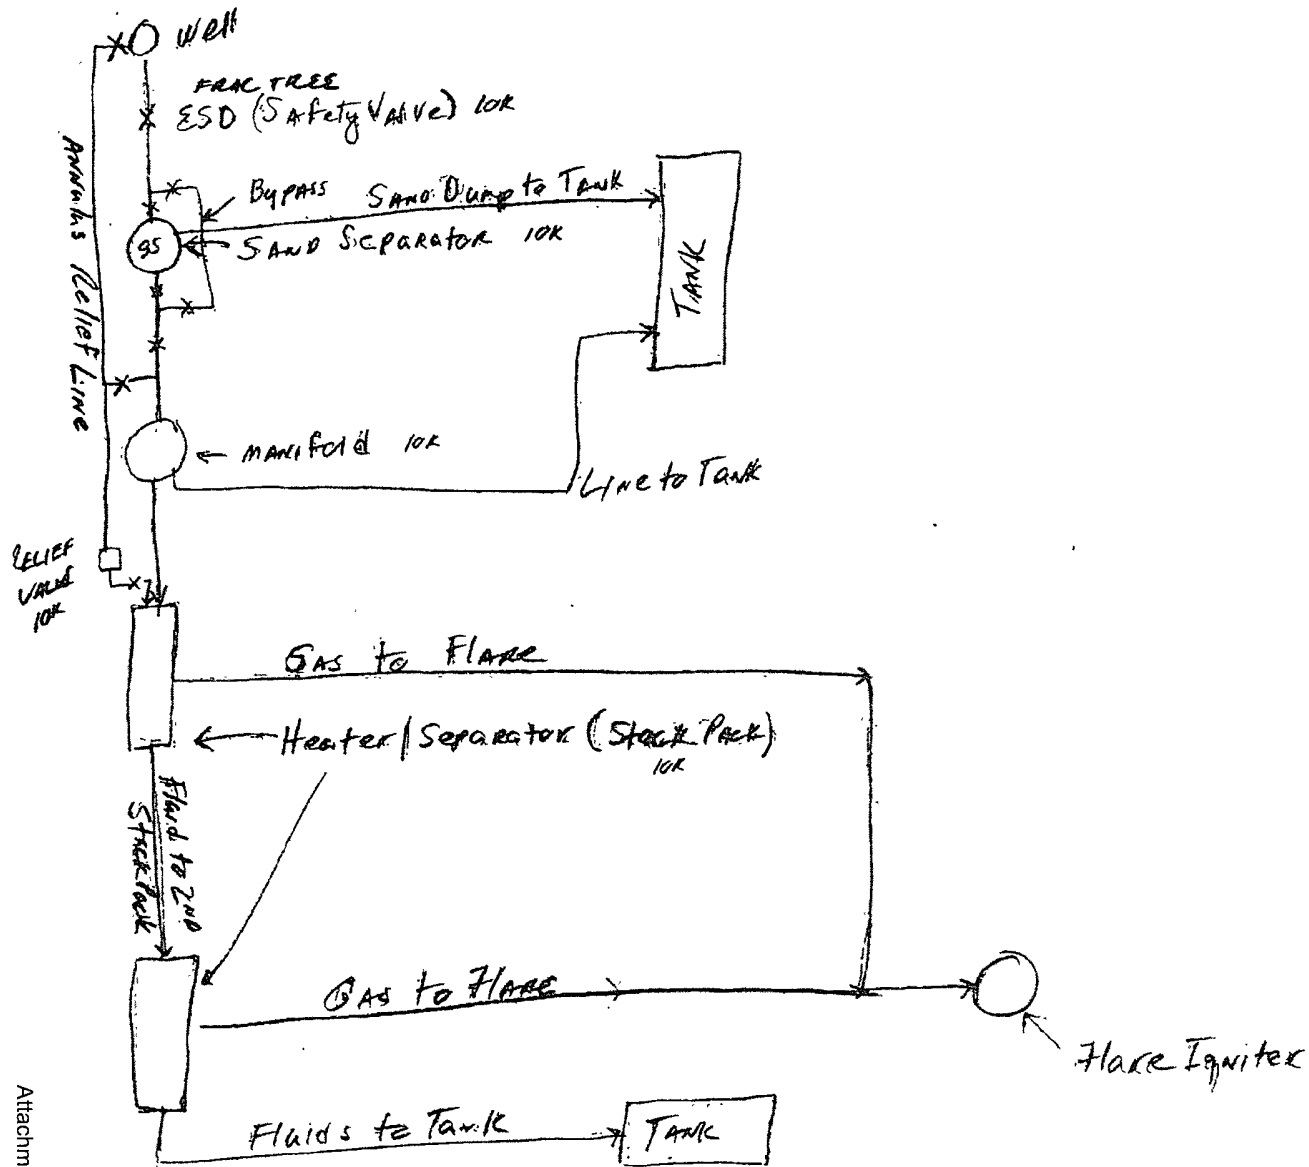 Well
FRAC TREE
ESD (Safety Valve) 10K
Annulus Relief Line
Bypass
Sand Dump to Tank
SS
Sand Separator 10K
Tank
Manifold 10K
Line to Tank
RELIEF
VALVE
10K
Gas to Flare
Heater/Separator (Stack Pack)
10K
Fluid to 2ND
Stack Pack
Gas to Flare
Flare Igniter
Fluids to Tank
Tank
Attachm